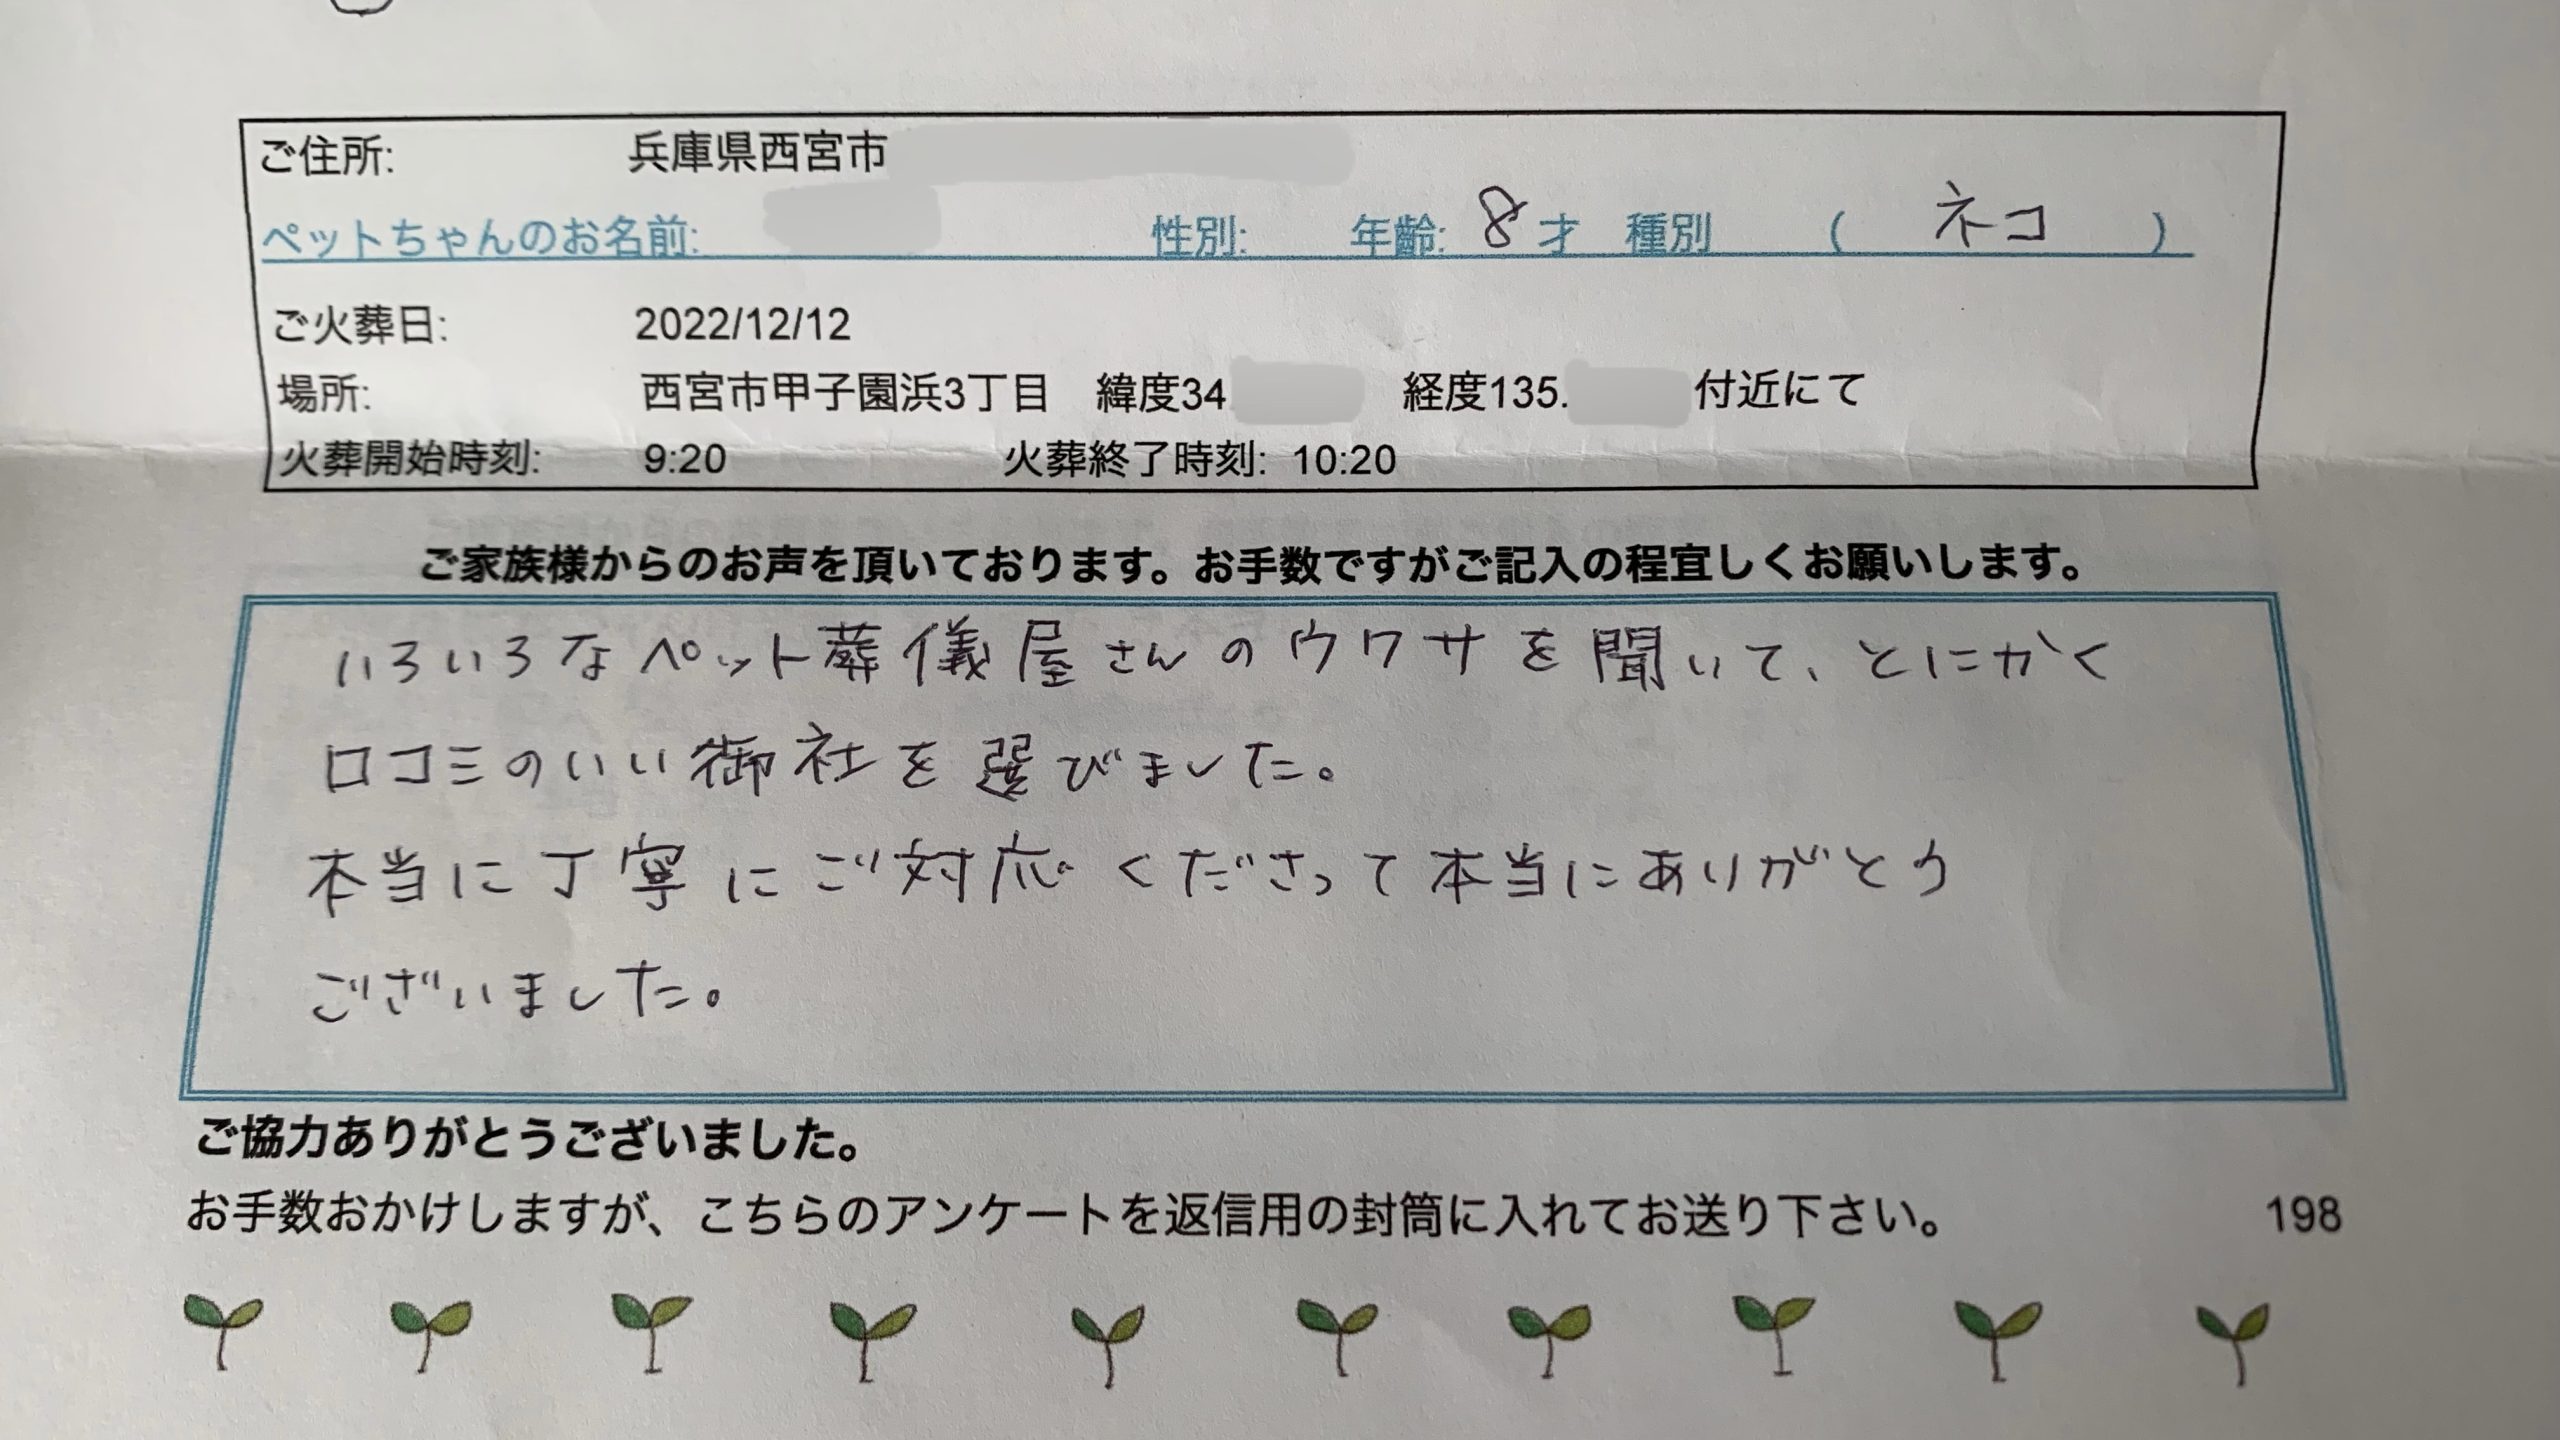 ご住所: 兵庫県西宮市
ペットちゃんのお名前: 性別: 年齢: 8才 種別 ( ネコ )
ご火葬日: 2022/12/12
場所: 西宮市甲子園浜3丁目 緯度34 経度135. 付近にて
火葬開始時刻: 9:20 火葬終了時刻: 10:20
ご家族様からのお声を頂いております。お手数ですがご記入の程宜しくお願いします。
いろいろなペット葬儀屋さんのウワサを聞いて、とにかく
口コミのいい御社を選びました。
本当に丁寧にご対応くださって本当にありがとう
ございました。
ご協力ありがとうございました。
お手数おかけしますが、こちらのアンケートを返信用の封筒に入れてお送り下さい。 198